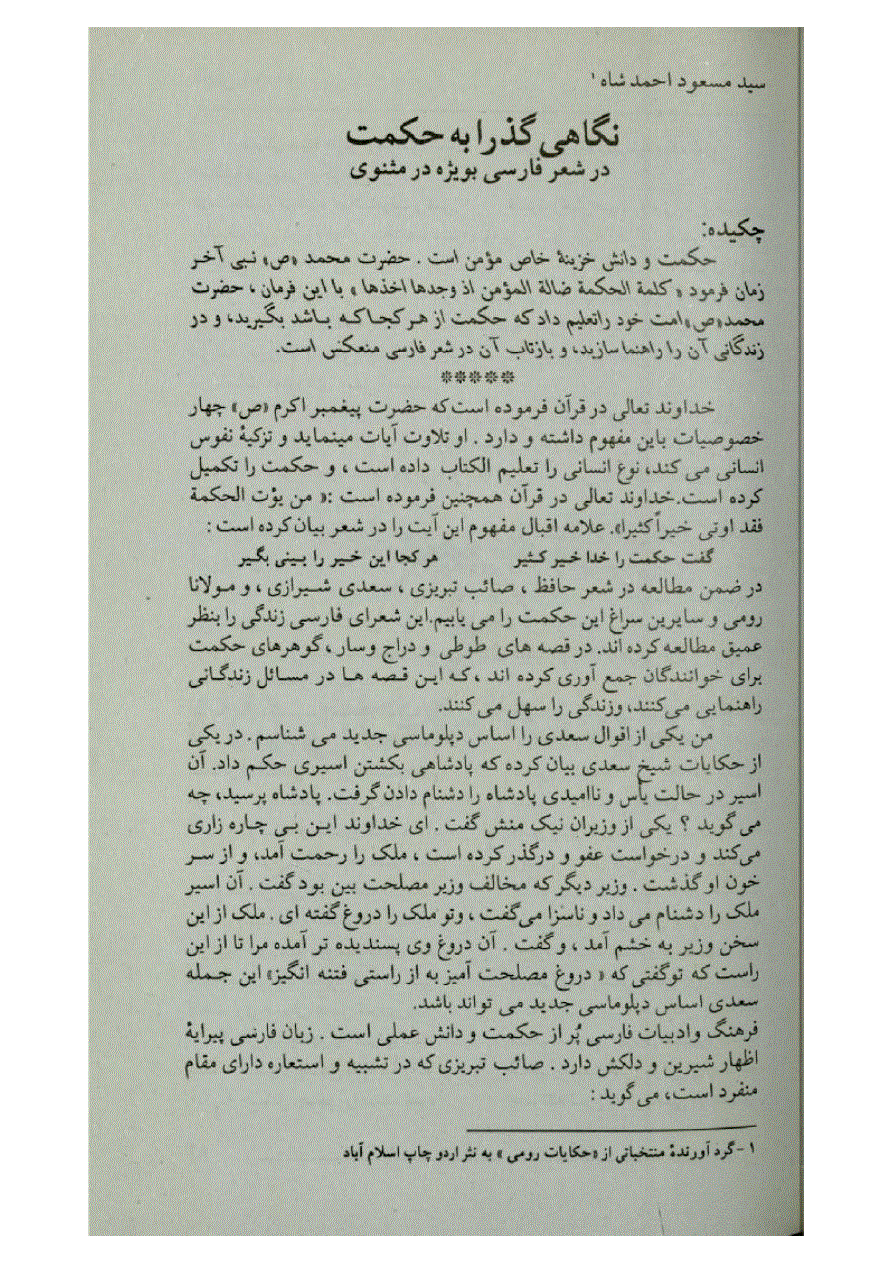 سید مسعود احمد شاه ۱
نگاهی گذرا به حکمت
در شعر فارسی بویژه در مثنوی
چکیده:
حکمت و دانش خزینهٔ خاص مؤمن است . حضرت محمد «ص» نبی آخر
زمان فرمود « کلمة الحکمة ضالة المؤمن اذ وجدها اخذها » با این فرمان ، حضرت
محمد«ص»امت خود راتعلیم داد که حکمت از هر کجا که باشد بگیرید، و در
زندگانی آن را راهنما سازید، و بازتاب آن در شعر فارسی منعکس است.
*****
خداوند تعالی در قرآن فرموده است که حضرت پیغمبر اکرم «ص» چهار
خصوصیات باین مفهوم داشته و دارد . او تلاوت آیات مینماید و تزکیهٔ نفوس
انسانی می کند، نوع انسانی را تعلیم الکتاب داده است ، و حکمت را تکمیل
کرده است.خداوند تعالی در قرآن همچنین فرموده است :« من یؤت الحکمة
فقد اوتی خیراً کثیرا». علامه اقبال مفهوم این آیت را در شعر بیان کرده است :
گفت حکمت را خدا خیر کثیر هر کجا این خیر را بینی بگیر
در ضمن مطالعه در شعر حافظ ، صائب تبریزی ، سعدی شیرازی ، و مولانا
رومی و سایرین سراغ این حکمت را می یابیم.این شعرای فارسی زندگی را بنظر
عمیق مطالعه کرده اند. در قصه های طوطی و دراج وسار ،گوهرهای حکمت
برای خوانندگان جمع آوری کرده اند ، که این قصه ها در مسائل زندگانی
راهنمایی می کنند، وزندگی را سهل می کنند.
من یکی از اقوال سعدی را اساس دپلوماسی جدید می شناسم . در یکی
از حکایات شیخ سعدی بیان کرده که پادشاهی بکشتن اسیری حکم داد. آن
اسیر در حالت یأس و ناامیدی پادشاه را دشنام دادن گرفت. پادشاه پرسید، چه
می گوید ؟ یکی از وزیران نیک منش گفت . ای خداوند این بی چاره زاری
می کند و درخواست عفو و درگذر کرده است ، ملک را رحمت آمد، و از سر
خون او گذشت . وزیر دیگر که مخالف وزیر مصلحت بین بود گفت . آن اسیر
ملک را دشنام می داد و ناسزا می گفت ، وتو ملک را دروغ گفته ای . ملک از این
سخن وزیر به خشم آمد ، و گفت . آن دروغ وی پسندیده تر آمده مرا تا از این
راست که توگفتی که « دروغ مصلحت آمیز به از راستی فتنه انگیز» این جمله
سعدی اساس دپلوماسی جدید می تواند باشد.
فرهنگ وادبیات فارسی پُر از حکمت و دانش عملی است . زبان فارسی پیرایهٔ
اظهار شیرین و دلکش دارد . صائب تبریزی که در تشبیه و استعاره دارای مقام
منفرد است، می گوید :
۱ -گرد آورندهٔ منتخباتی از «حکایات رومی » به نثر اردو چاپ اسلام آباد